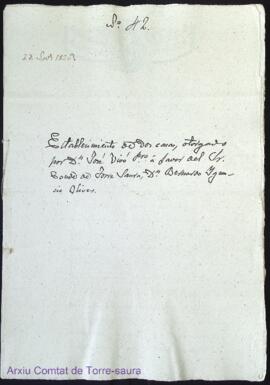 Nº 42.
Establecimiento de dos casas, otorgado
por Dn. José Vivó Pro. à favor del Sr.
Conde de Torre Saura, Dn. Bernardo Ygna-
cio Olives.
Arxiu Comtat de Torre-saura